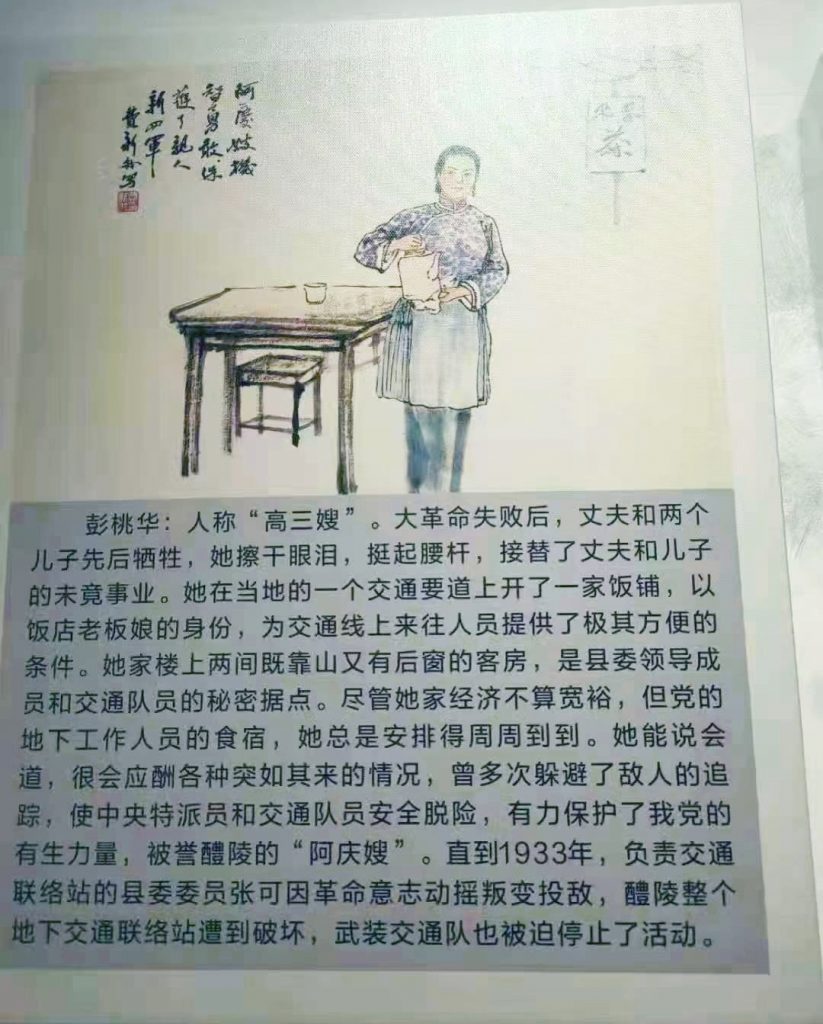 阿慶嫂機
智勇敢保
護了親人
新四軍
茶
彭桃华：人称“高三嫂”。大革命失败后，丈夫和两个
儿子先后牺牲，她擦干眼泪，挺起腰杆，接替了丈夫和儿子
的未竟事业。她在当地的一个交通要道上开了一家饭铺，以
饭店老板娘的身份，为交通线上来往人员提供了极其方便的
条件。她家楼上两间既靠山又有后窗的客房，是县委领导成
员和交通队员的秘密据点。尽管她家经济不算宽裕，但党的
地下工作人员的食宿，她总是安排得周周到到。她能说会
道，很会应酬各种突如其来的情况，曾多次躲避了敌人的追
踪，使中央特派员和交通队员安全脱险，有力保护了我党的
有生力量，被誉醴陵的“阿庆嫂”。直到1933年，负责交通
联络站的县委委员张可因革命意志动摇叛变投敌，醴陵整个
地下交通联络站遭到破坏，武装交通队也被迫停止了活动。